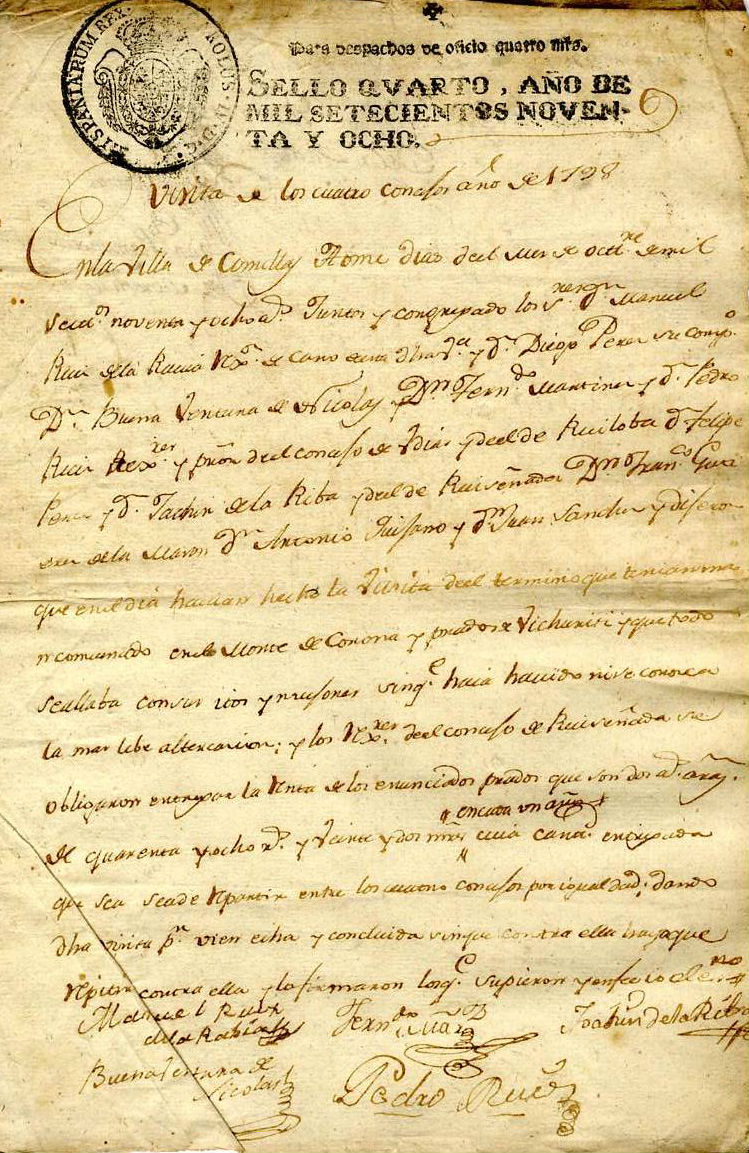 HISPANIARUM REX. CAROLUS. IV. D. G.
Para despachos de oficio quatro mrs.
SELLO QVARTO, AÑO DE
MIL SETECIENTOS NOVEN-
TA Y OCHO.
Visita de los cuatro concejos año de 1798
En la Villa de Comillas dias del mes de octre. de mil
setts. noventa y ocho as. Juntos y congregado los Sres. Dn. Manuel
Ruiz de la Ravia dha Va. y Dn. Diego Perez su comp.o
Dn. Buena Ventura de Nicolas y Dn. Ferndo. Martinez y Dn. Pedro
Ruiz Rexres. y del concejo de Vdias y del de Ruiloba Dn. Felipe
Perez y Dn. Jachin de la Riba y del de Ruiseñada Dn. Franco.
de la Dn. Antonio y Dn. Juan Sanchez y dijeron
que en el dia havian hecho la Visita del termino que tenian man
comunado en el Monte de Corona y prados de y que todo
se allaba con sus itos y sin qe. haia havido ni se conozca
la mas lebe altercacion; y los Rxres. del concejo de Ruiseñada se
obligaron entregar la Renta de los enunciados prados que son
en cada un año
de quarenta y ocho rs. y Veinte y dos mrs. cuia cantd. entregada
que sea se a de Rpartir entre los cuatro concejos por igualdad, dando
dha visita pr. vien echa y concluida sin que contra ella haya que
Rpitir contra ella y lo firmaron los qe. supieron y en fee io el eno.
Manuel Ruiz
de la Rabia
Ferndo. Marz
Joachin de la Riba
Buena Ventura de
Nicolas
Pedro Ruiz